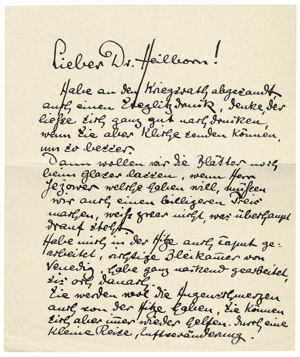 Lieber Dr. Heilborn!
Habe an den Kriegsrath abgesandt
auch einen Steglitzdruck, denke der
ließe sich ganz gut nachdrucken,
wenn Sie aber Klishe senden können,
um so besser.
Dann wollen wir die Blätter noch
beim Glaser lassen, wenn Herr
welche haben will, müssten
wir auch einen billigeren Preis
machen, weiß zwar nicht, was überhaupt
drauf steht
Habe mich in der Hitze auch caput ge-
arbeitet, richtige Bleikamer von
Venedig, habe ganz nackend gearbeitet,
Sie werden wol die Augenschmerzen
auch von der Hitze haben, Sie können
sich aber imer wieder helfen durch eine
kleine Reise, Luftveränderung.